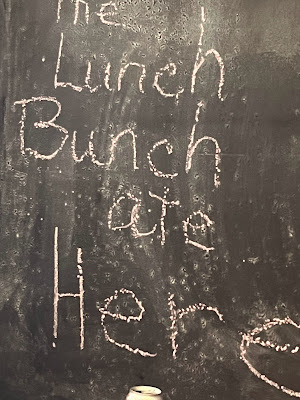 The
Lunch
Bunch
ate
Here